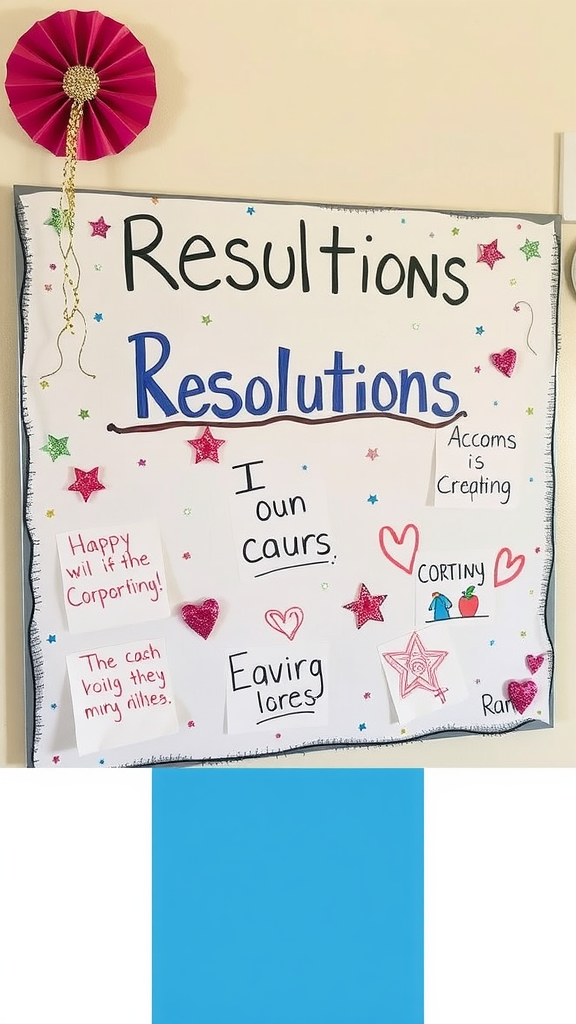 Resultions
Resolutions
Accoms
is
Crepting
I
oun
caurs.
Happy
wil if the
Corporfing!
CORTINY
The cash
voilg they
miny nilses.
Eavirg
lores
Ran